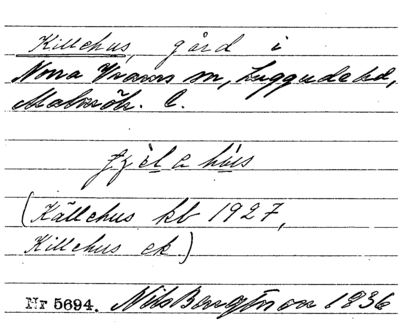 Killehus, gård i
Norra Vrams sn, Luggude hd,
Malmöh. l.
fjèl a hùs
(Källehus kb 1927,
Killehus ek.)
Nr 5694. Nils Bengtsson 1936